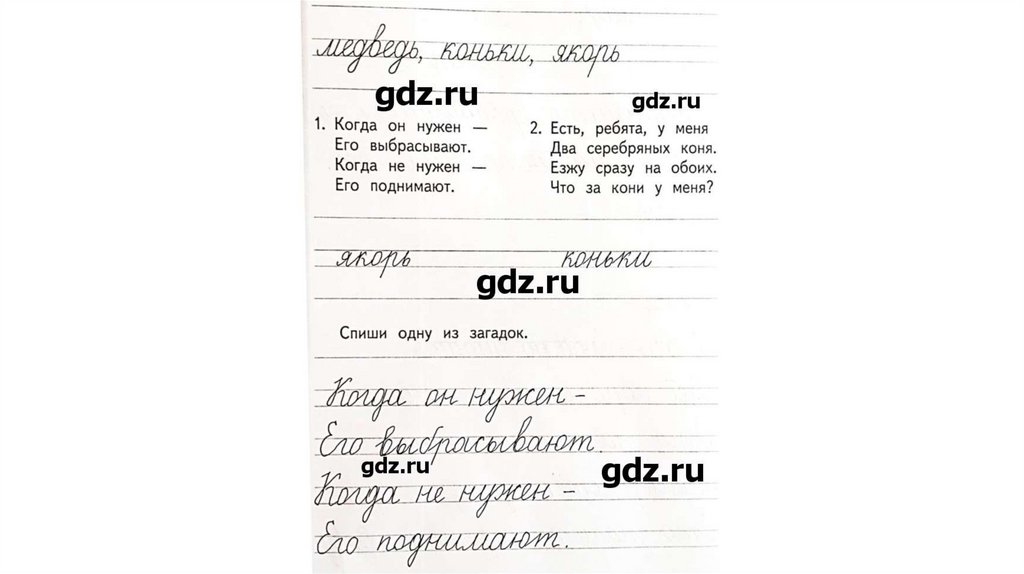 медведь, коньки, якорь
gdz.ru
gdz.ru
1. Когда он нужен —
Его выбрасывают.
Когда не нужен —
Его поднимают.
2. Есть, ребята, у меня
Два серебряных коня.
Езжу сразу на обоих.
Что за кони у меня?
якорь коньки
gdz.ru
Спиши одну из загадок.
Когда он нужен –
Его выбрасывают.
gdz.ru
gdz.ru
Когда не нужен –
Его поднимают.